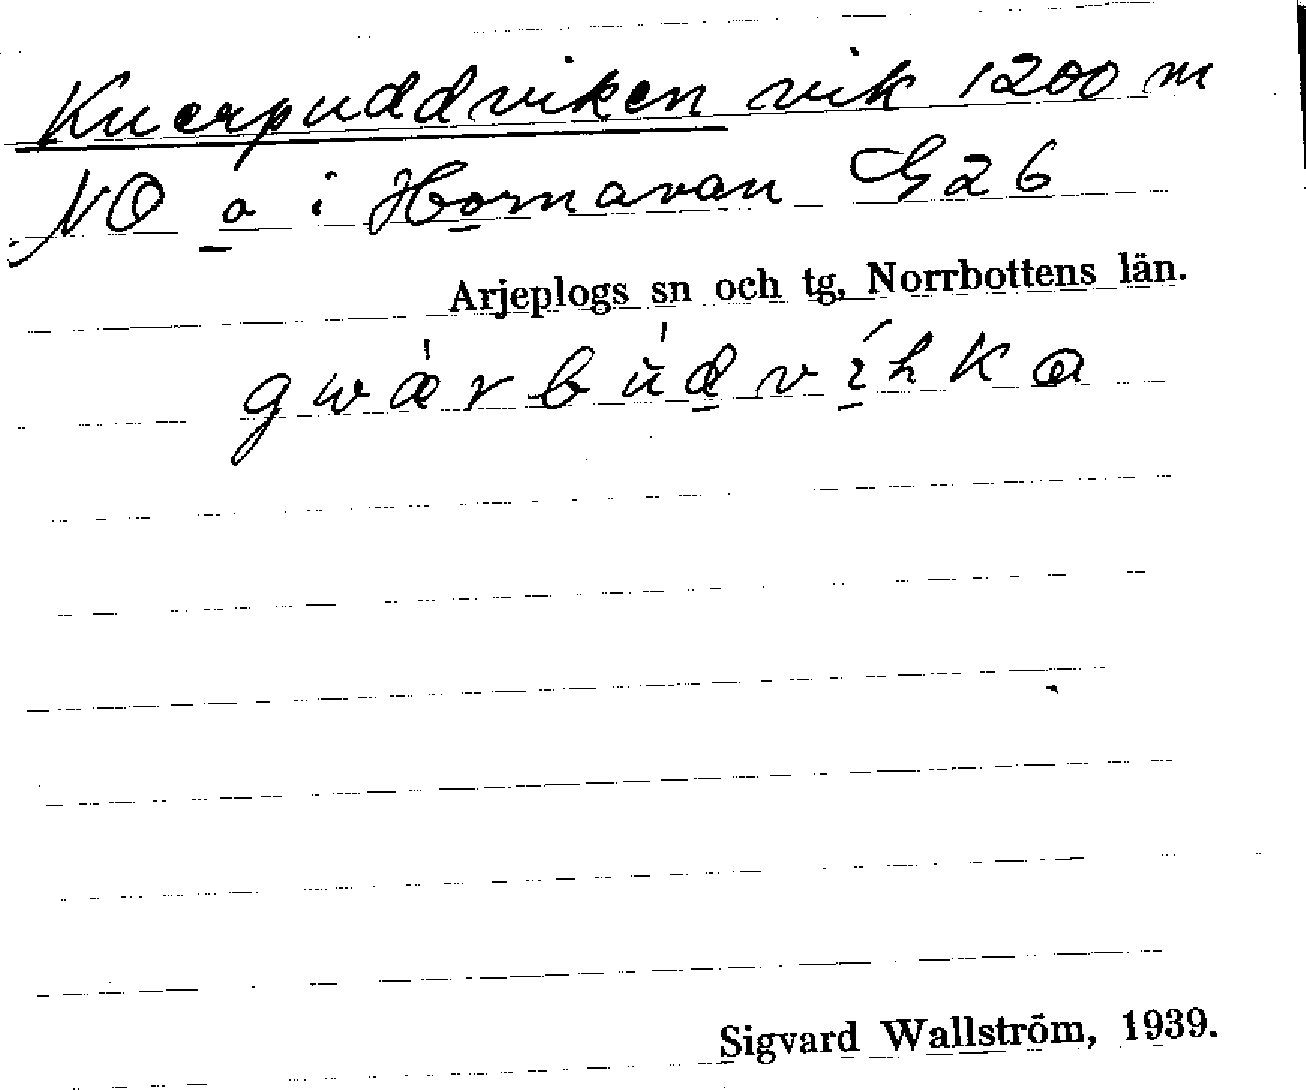 Kuerpuddviken vik 1200 m
NO o i Hornavan G26
Arjeplogs sn och tg, Norrbottens län.
Sigvard Wallström, 1939.